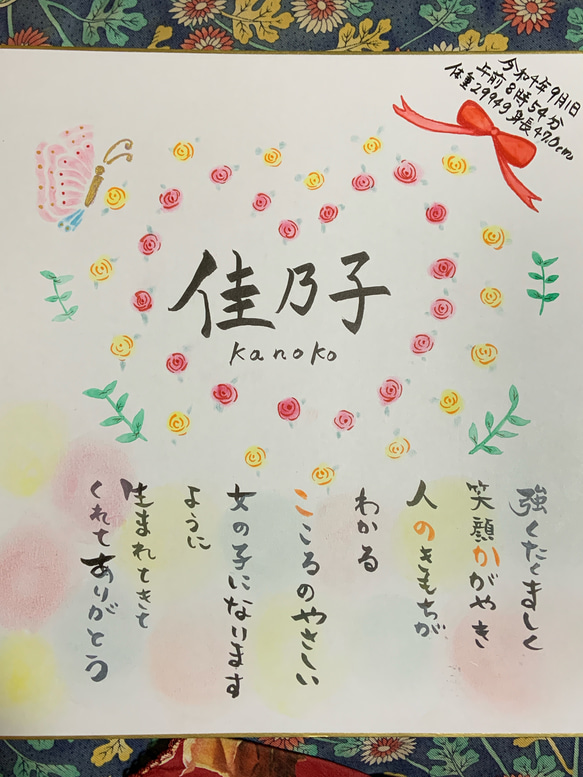 令和4年9月1日
午前8時54分
体重2994g 身長47.0cm
佳乃子
kanoko
強くたくましく
笑顔かがやき
人のきもちが
わかる
こころのやさしい
女の子になります
ように
生まれてきて
くれてありがとう